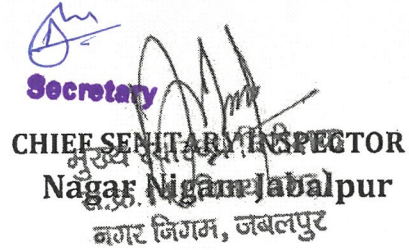 Secretary
CHIEF SENITARY INSPECTOR
मुख्य
Nagar Nigam Jabalpur
नगर निगम, जबलपुर